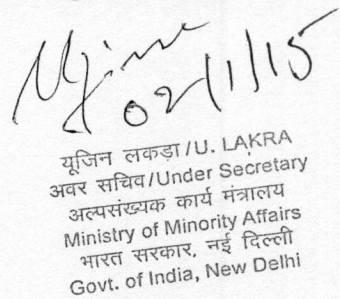 02/1/15
यूजिन लकड़ा/U. LAKRA
अवर सचिव/Under Secretary
अल्पसंख्यक कार्य मंत्रालय
Ministry of Minority Affairs
भारत सरकार, नई दिल्ली
Govt. of India, New Delhi